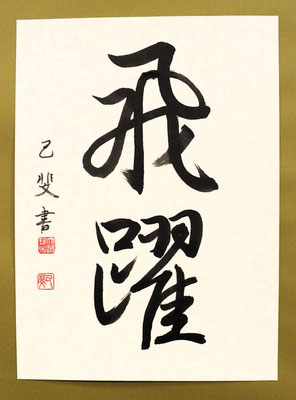 飛躍
己斐書